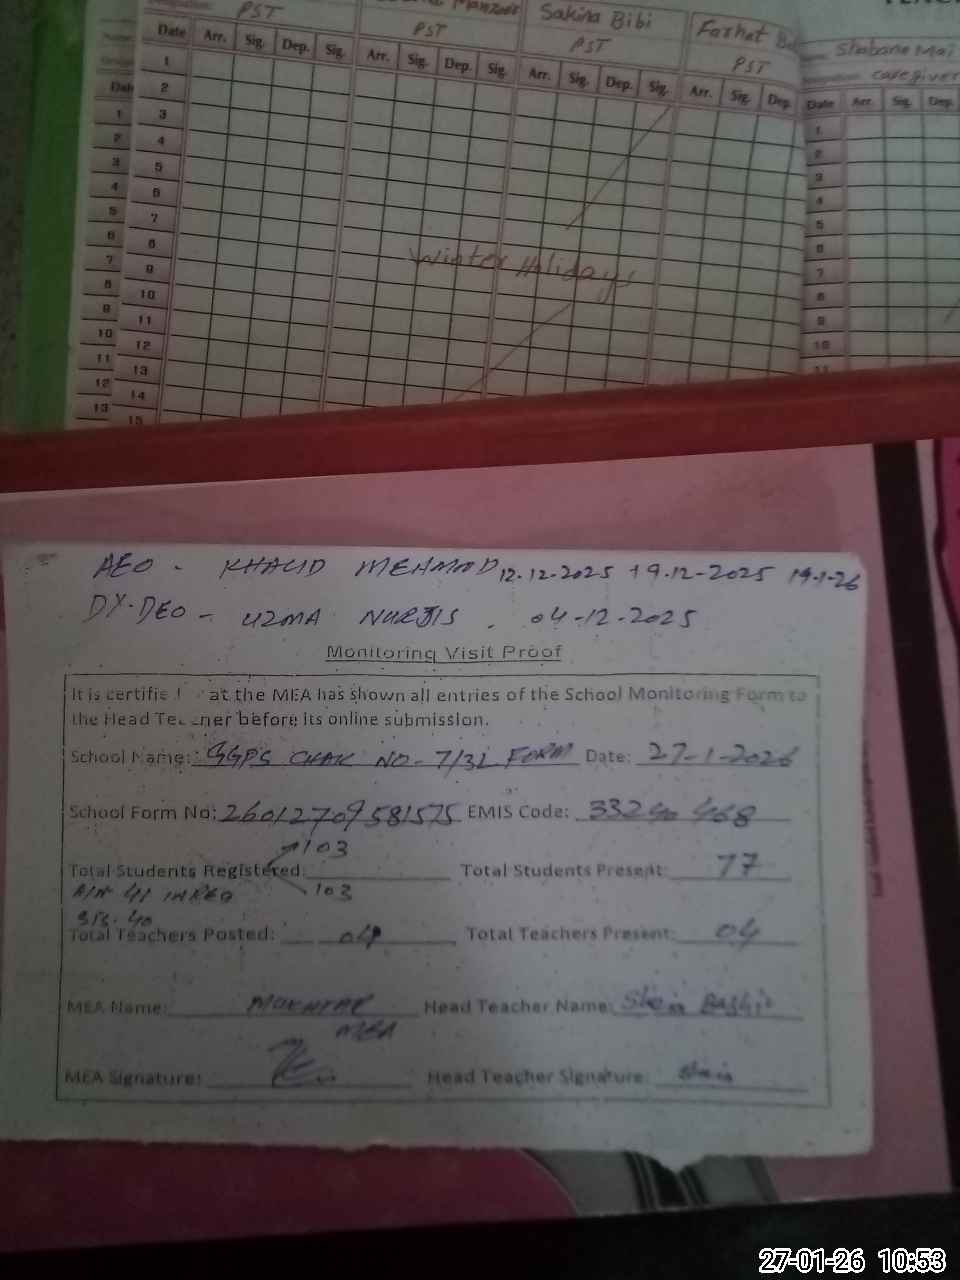 PST
Manzoor
PST
Sakina Bibi
PST
Farhat
PST
Shabana Mai
caregiver
Date Arr. Sig. Dep. Sig. Arr. Sig. Dep. Sig. Arr. Sig. Dep. Sig. Arr. Sig. Dep.
Date Arr. Sig. Dep.
1
2
3
4
5
6
7
8
9
10
11
12
13
14
15
Winter Holidays
AEO - KHALID MEHMOOD 12.12.2025 19.12-2025 19-1-26
DY-DEO - UZMA NURJIS . 04-12-2025
Monitoring Visit Proof
It is certifie at the MEA has shown all entries of the School Monitoring Form to
the Head Teacher before its online submission.
School Name: GGPS CHAK NO. 7/3L FORM Date: 27-1-2026
School Form No: 26012709581575 EMIS Code: 33240468
103
Total Students Registered: Total Students Present: 77
103
Total Teachers Posted: 04 Total Teachers Present: 04
MEA Name: MUKHTAR Head Teacher Name: Bashir
MEA
MEA Signature: Head Teacher Signature:
27-01-26 10:53